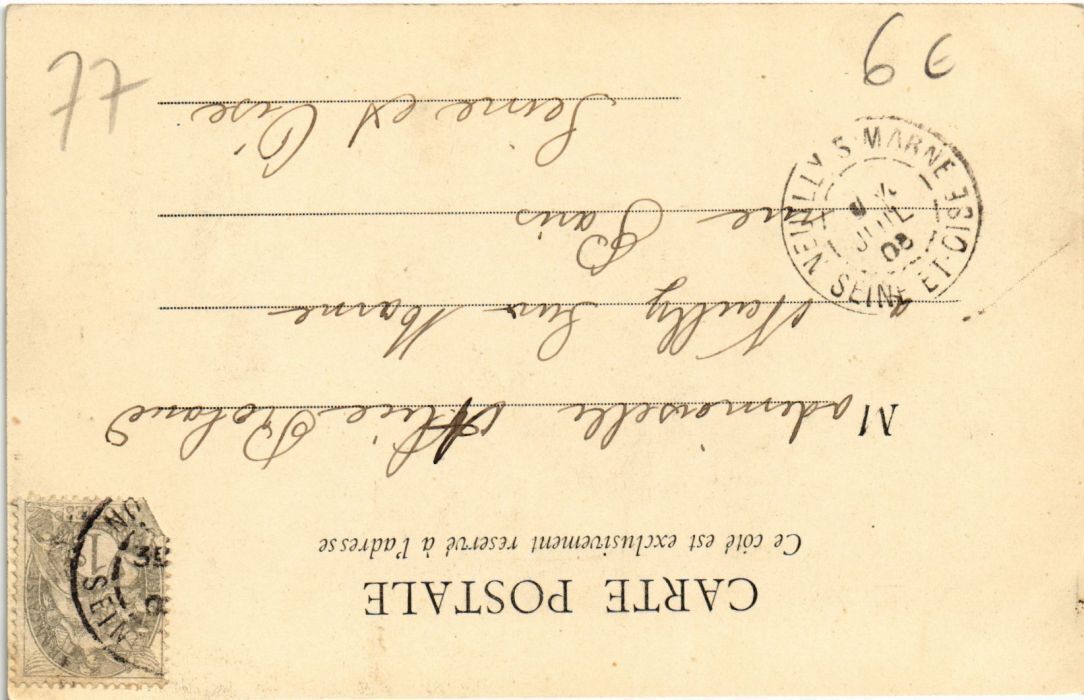 CARTE POSTALE
Ce côté est exclusivement reservé à l'adresse
Mademoiselle Alice Roland
a Neuilly Sur Marne
rue Paris
Seine et Oise
NEUILLY S. MARNE SEINE-ET-OISE
JUIL
08
1
SEINE
77